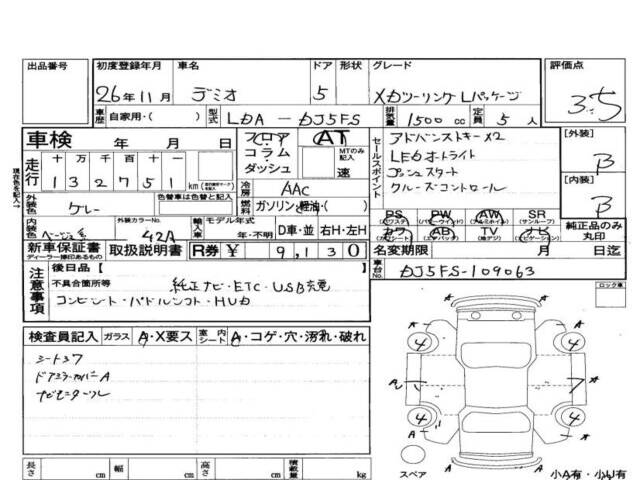 出品番号 初度登録年月 車名 ドア 形状 グレード 評価点
26年11月 デミオ 5 XDツーリングLパッケージ 3.5
車歴 自家用・( ) 型式 LDA-DJ5FS 排気量 1500cc 定員 5人
車検 年 月 日 フロア AT セールスポイント アドバンストキーX2 [外装]
コラム MTのみ記入 LEDオートライト B
走行 十 万 千 百 十 一 ダッシュ 速 プッシュスタート
132751 km 冷房 AAC クルーズコントロール [内装]
現車色名を記入 外装色 グレー 色替車は色替と記入 燃料 ガソリン・軽油・( ) B
PS PW AW SR
(パワステ) (パワーウインド) (アルミホイル) (サンルーフ)
内装色 ベージュ系 外装カラーNo. 42A 輸入車 モデル年式 年・不明 D車・並 右H・左H カワ AB TV ナビ 純正品のみ丸印
(カワシート) (エアバッグ) (地デジ) (ナビゲーション)
新車保証書 取扱説明書 R券 ¥ 9,130 名変期限 月 日迄
ディーラー捺印あるもの
注意事項 後日品【 】 車台No. DJ5FS-109063
不具合箇所等 純正ナビ・ETC・USB充電
コンビシート・パドルシフト・HUD
ロック車
検査員記入 ガラス A・X要ス 室内シート A・コゲ・穴・汚れ・破れ
シートスフ
ドアミラーカバーA
ナビモニターフレ
4 4
A 7 A
4 4
A
長さ cm 幅 cm 高さ cm 積載量 kg
スペア 小A有・小U有